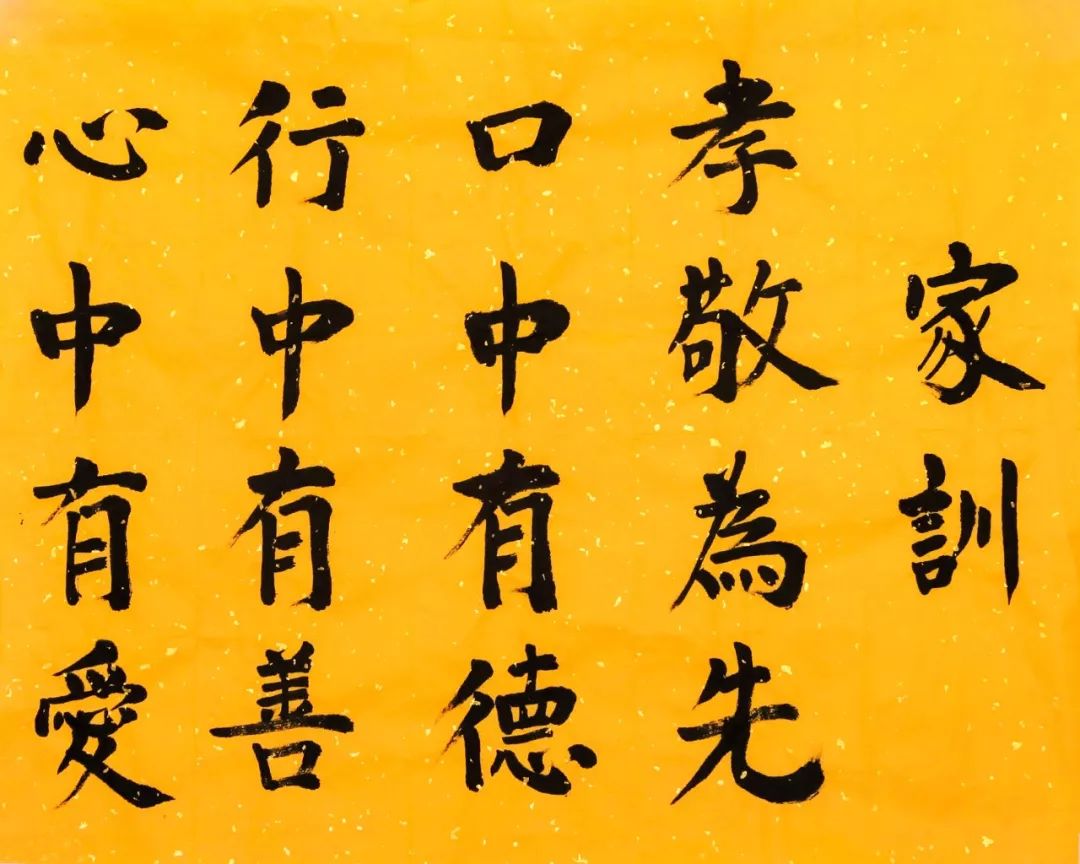 家訓
孝敬為先
口中有德
行中有善
心中有愛